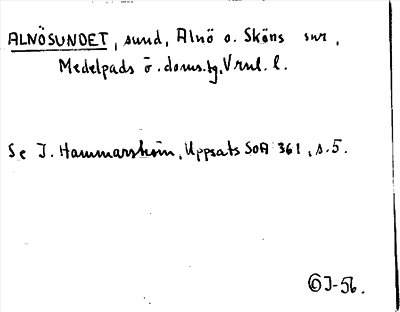 ALNÖSUNDET, sund, Alnö o. Sköns snr,
Medelpads ö. doms.tg, Vrnl. l.
Se I. Hammarström, Uppsats SOA 361, s.5.
ÖJ-56.